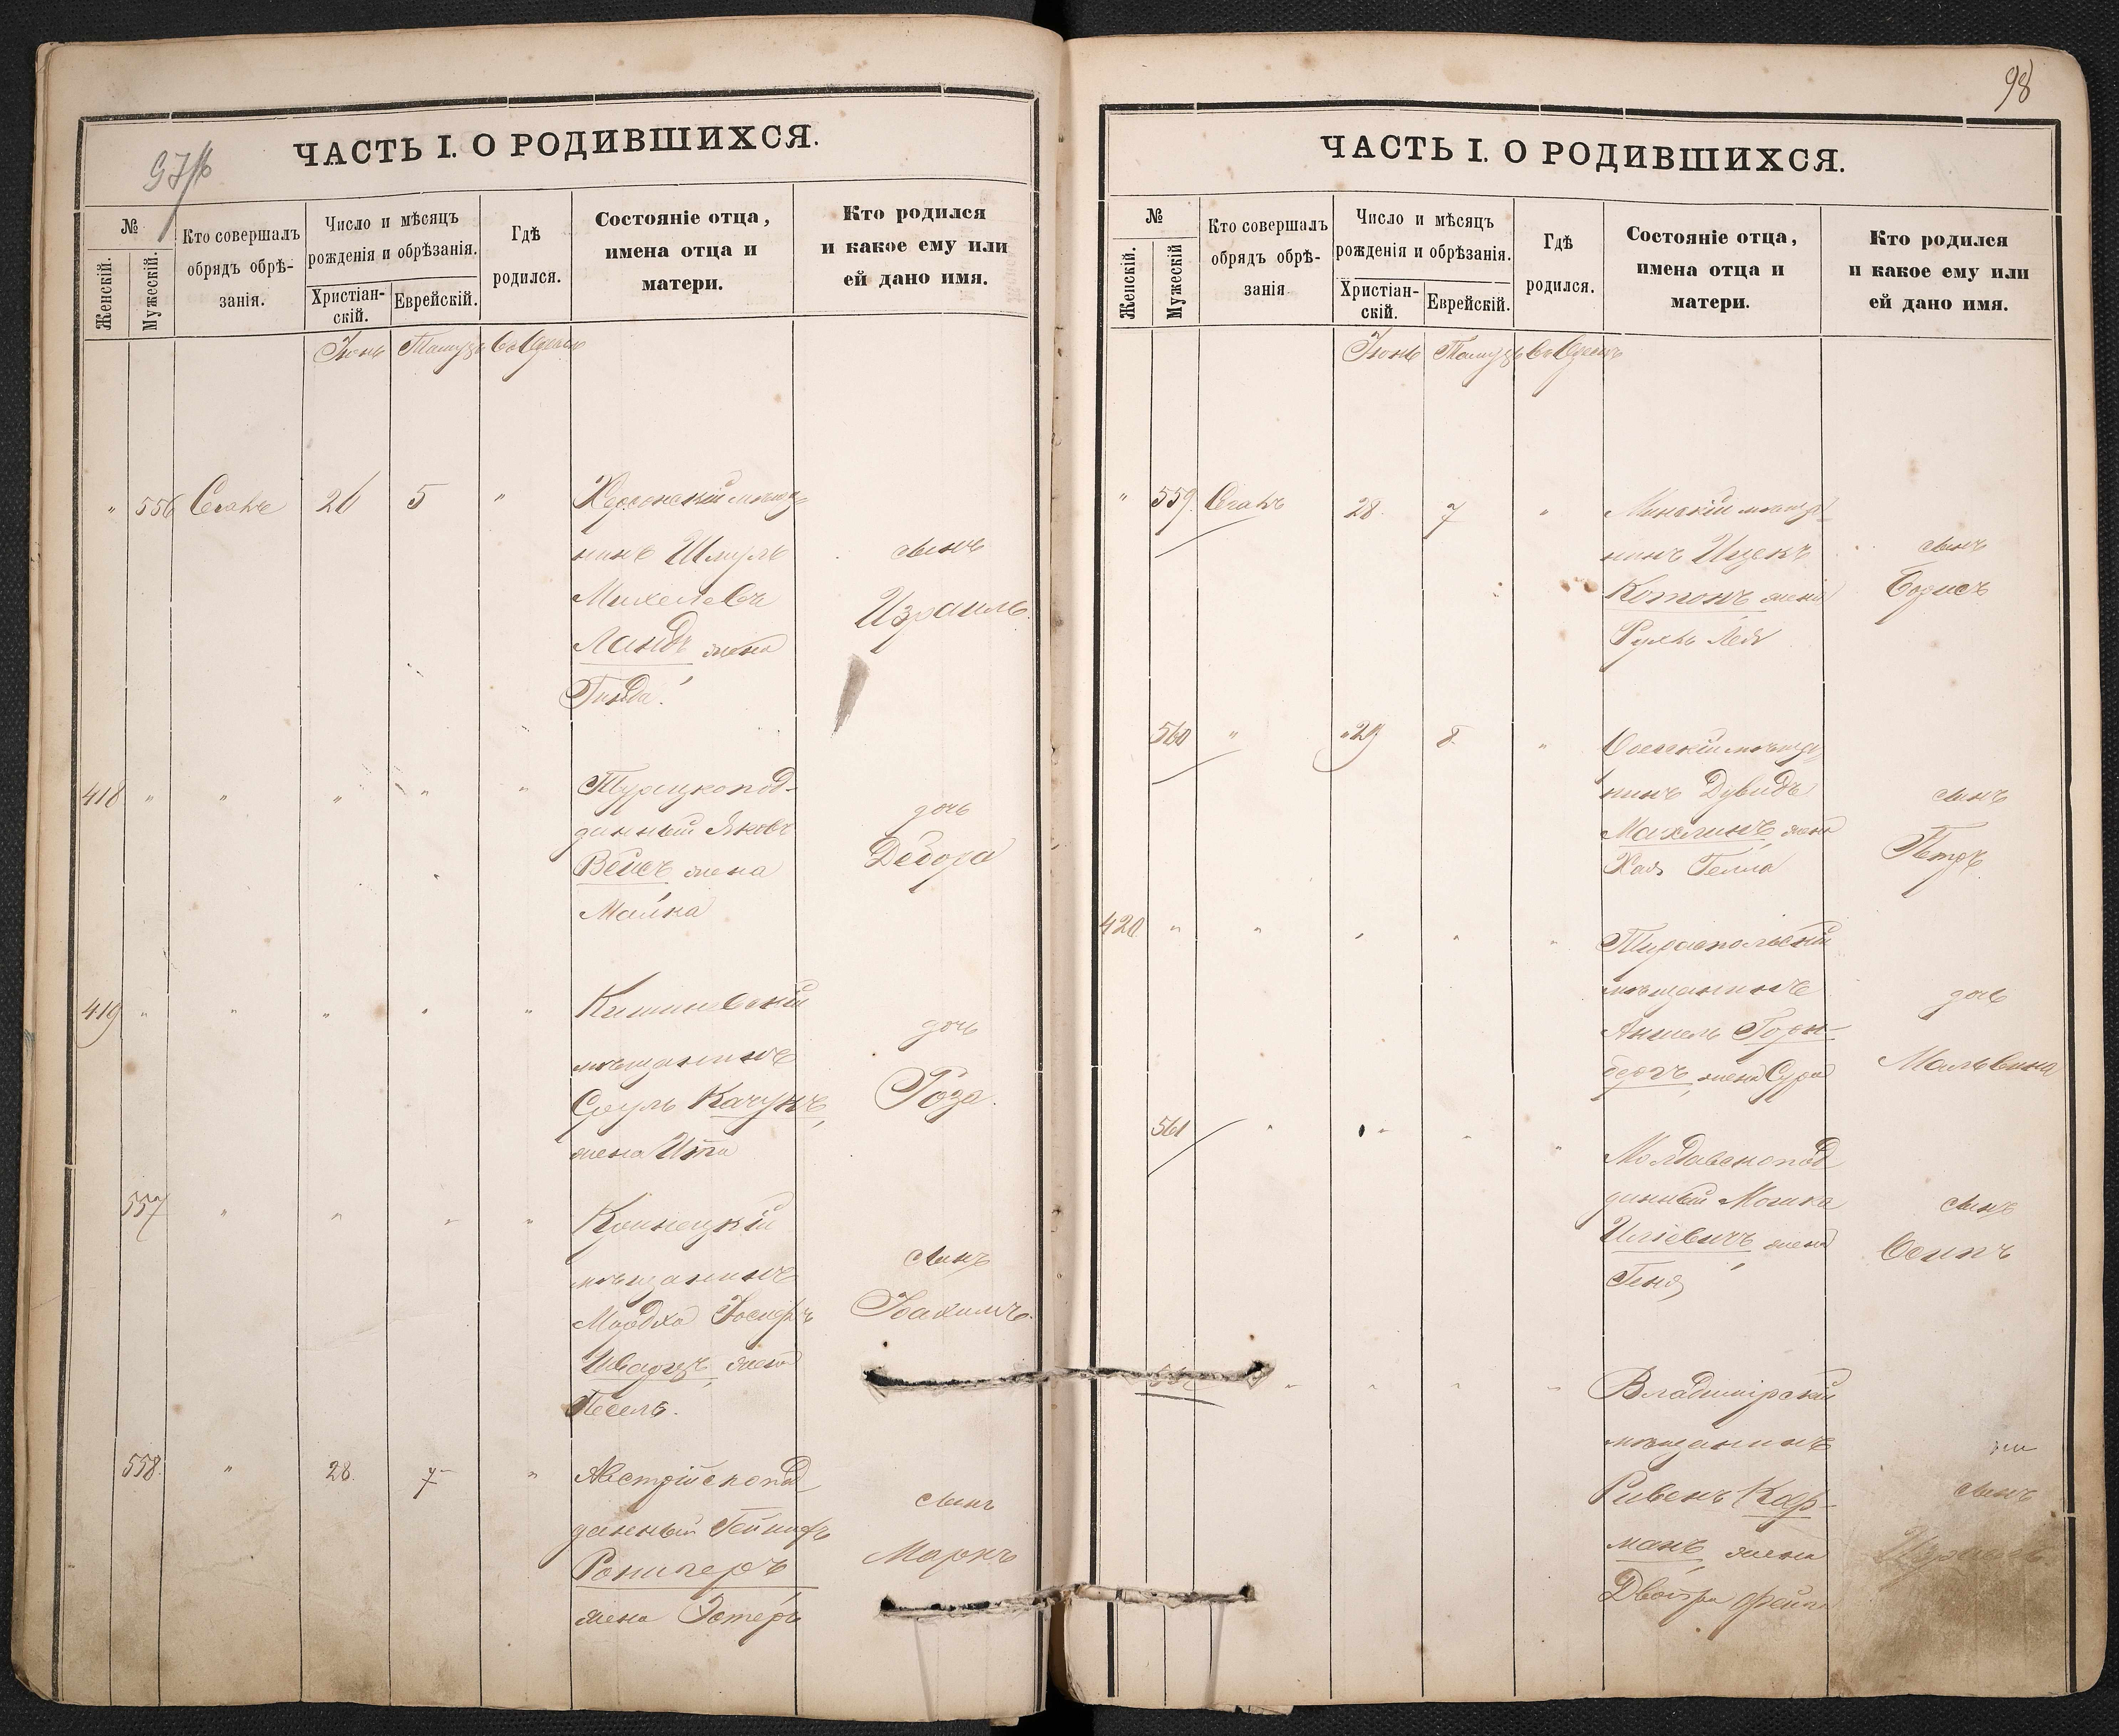 97/об
ЧАСТЬ I. О РОДИВШИХСЯ.
№
Женскій.
Мужескій.
Кто совершалъ
обрядъ обрѣ-
занія.
Число и мѣсяцъ
рожденія и обрѣзанія.
Христіан-
скій.
Еврейскій.
Гдѣ
родился.
Состояніе отца,
имена отца и
матери.
Кто родился
и какое ему или
ей дано имя.
Іюнь Тамузъ
" 556 26 5 " Херсонскій мѣща-
нинъ Шмуль
Михелевъ
Ландъ жена
сынъ
Израиль
418 " " " " " Турецкопод-
данный Яковъ
Вейсъ жена
Малка
дочь
Дебора
419 " " " " " Кишиневскій
мѣщанинъ
Сруль Качукъ,
жена Ита
дочь
Роза.
557 " " " "
мѣщанинъ
Мордхо Іосифъ
Шварцъ, жена
Песель.
сынъ
Іоахимъ.
558. " 28. 7 " Австрійскопод
данный
жена Эстеръ
сынъ
Маркъ
98
ЧАСТЬ I. О РОДИВШИХСЯ.
№
Женскій.
Мужескій
Кто совершалъ
обрядъ обрѣ-
занія
Число и мѣсяцъ
рожденія и обрѣзанія.
Христіан-
скій.
Еврейскій.
Гдѣ
родился.
Состояніе отца,
имена отца и
матери.
Кто родился
и какое ему или
ей дано имя.
Іюнь Тамузъ
" 559. 28. 7 " Минскій мѣща-
нинъ Ицекъ
Котонъ жена
Рухль Лея
сынъ
Борисъ
560 " 29 8. " Одесскій мѣща-
нинъ Дувидъ
Махлинъ, жена
Хая
сынъ
Петръ.
420 " " " " " Тираспольскій
мѣщанинъ
Аншель Горн-
бергъ, жена Сура
дочь
Мальвина
561 " " " " Молдавскопод
данный Мошка
Иліевичъ, жена
Геня
сынъ
Осипъ
" " " " Владимірскій
мѣщанинъ
Рувенъ
манъ, жена
Двойра Фейга
сынъ